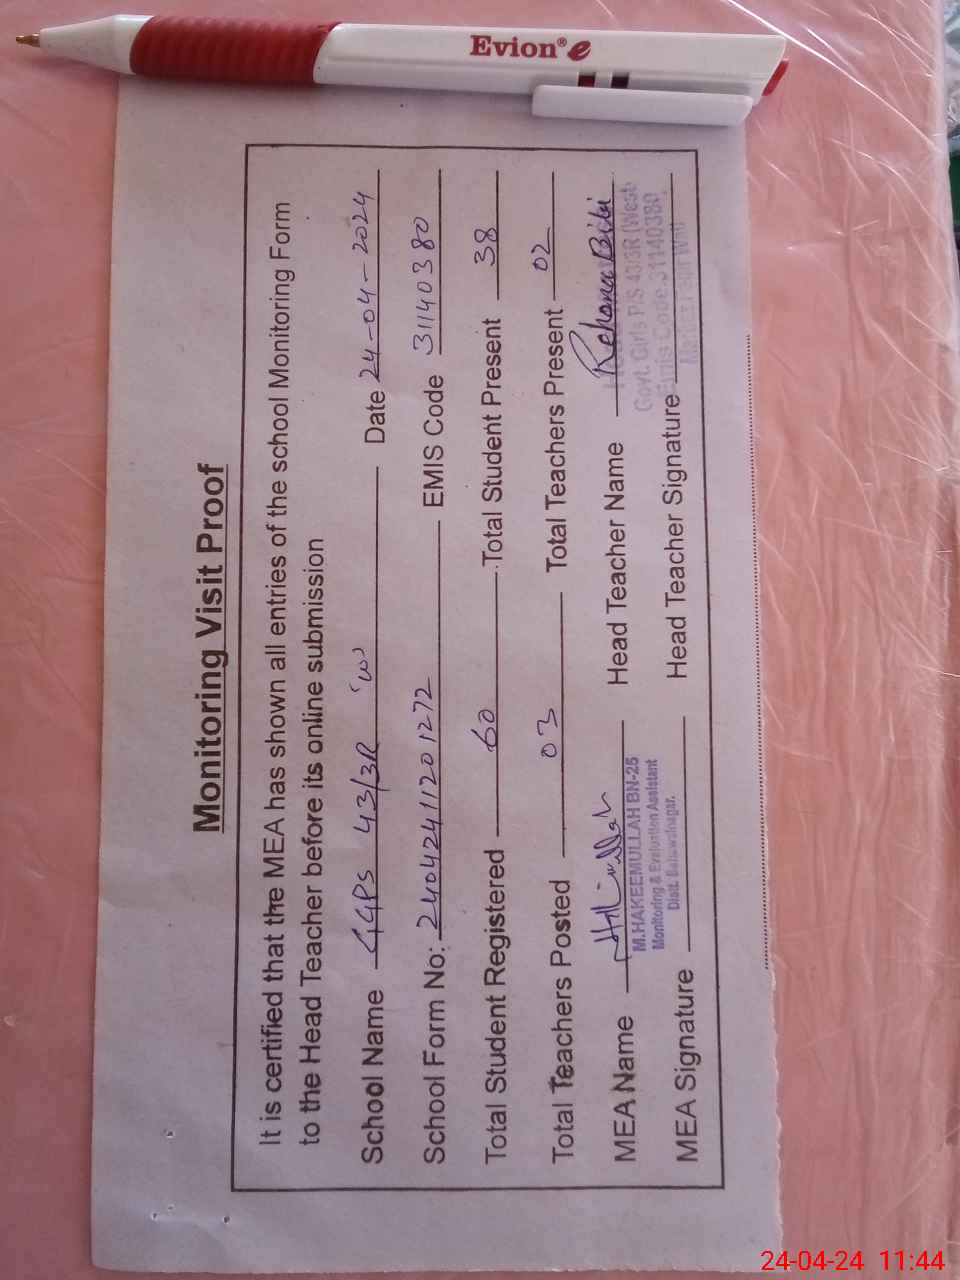 Evion® e
Monitoring Visit Proof
It is certified that the MEA has shown all entries of the school Monitoring Form
to the Head Teacher before its online submission
School Name GGPS 43/3R 'W' Date 24-04-2024
School Form No: 24042411201272 EMIS Code 31140380
Total Student Registered 60 Total Student Present 38
Total Teachers Posted 03 Total Teachers Present 02
MEA Name Head Teacher Name Rehana Bibi
M.HAKEEMULLAH BN-25
Monitoring & Evaluation Assistant
Distt. Bahawalnagar.
Govt. Girls P/S 43/3R (West
Emis Code.31140380
MEA Signature Head Teacher Signature
24-04-24 11:44